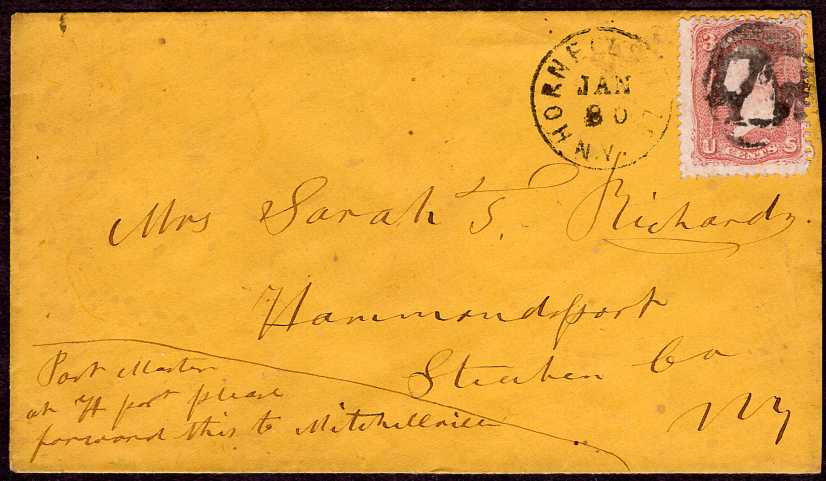 HORNELLSV
JAN
30
N.Y.
3
U CENTS S
Mrs Sarah S. Richards
Hammondsport
Steuben Co
NY
Post Master
at H port please
forward this to Mitchellville